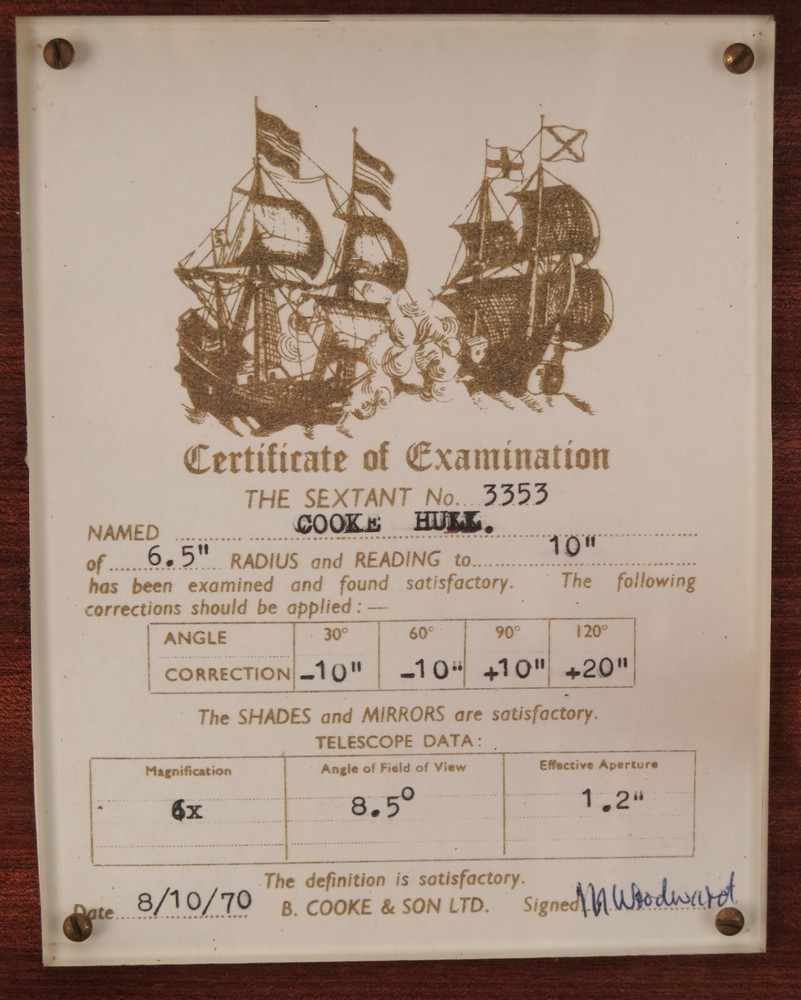 Certificate of Examination
THE SEXTANT No. 3353
NAMED COOKE HULL.
of 6.5" RADIUS and READING to 10"
has been examined and found satisfactory. The following
corrections should be applied :—
ANGLE 30° 60° 90° 120°
CORRECTION -10" -10" +10" +20"
The SHADES and MIRRORS are satisfactory.
TELESCOPE DATA:
Magnification Angle of Field of View Effective Aperture
6x 8.5° 1.2"
The definition is satisfactory.
Date 8/10/70 B. COOKE & SON LTD. Signed M Woodward